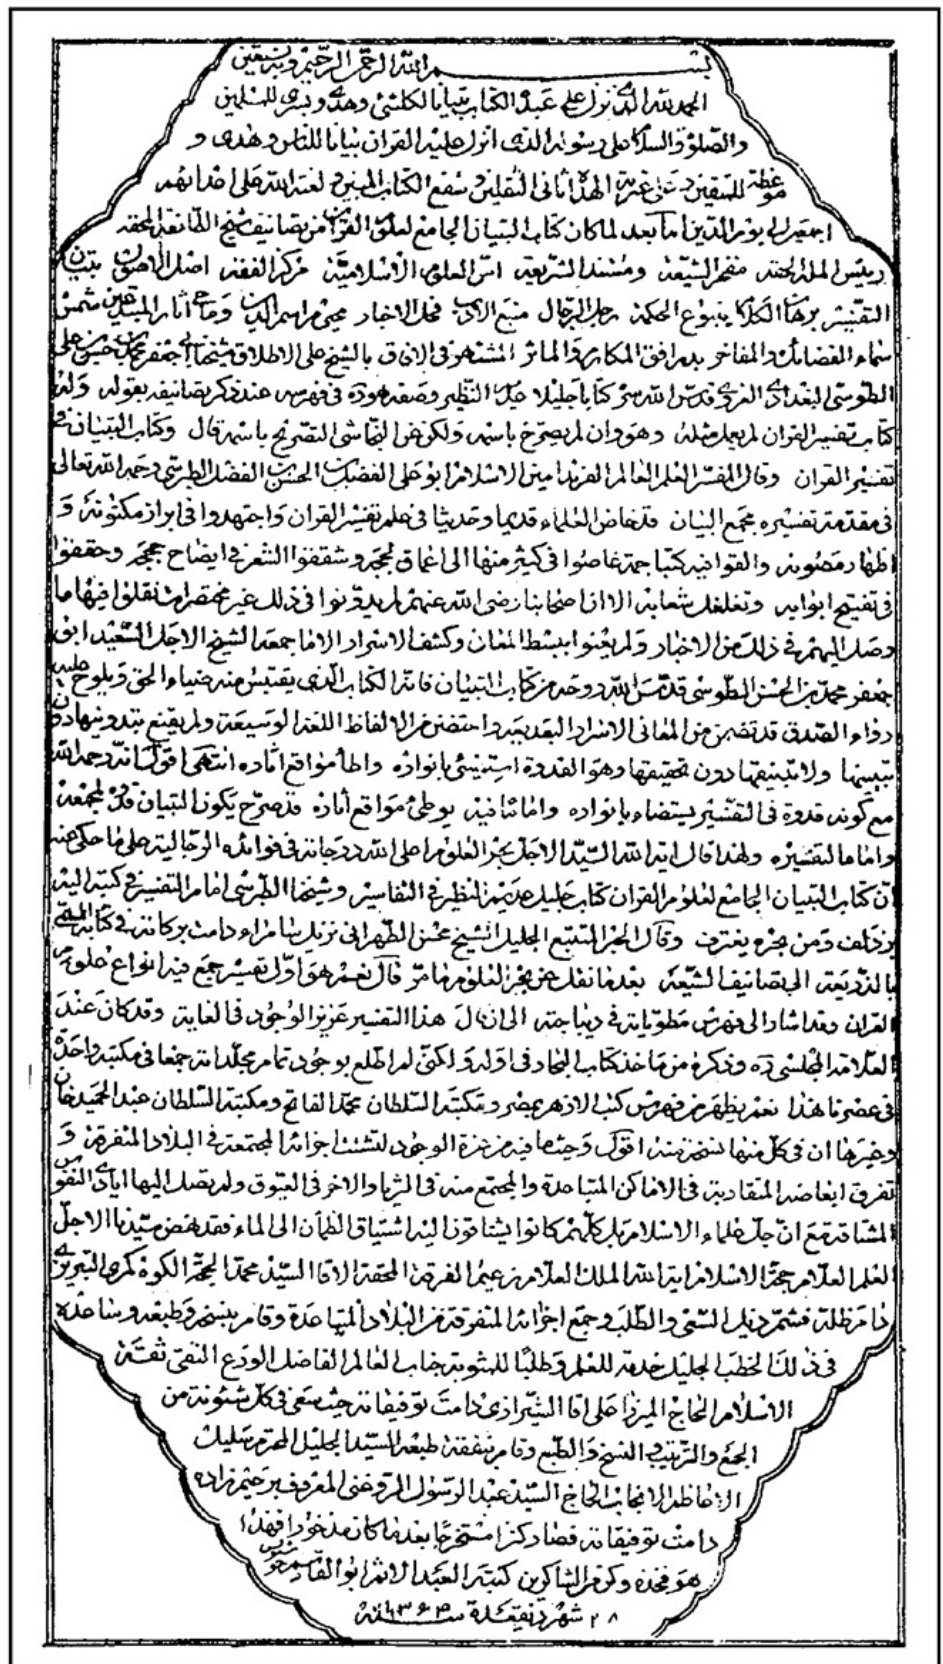 بسم الله الرحمن الرحيم وبه نستعين
الحمد لله الذي نزل على عبده الكتاب تبيانا لكل شئ وهدى وبشرى للمسلمين
والصلوة والسلام على رسوله الذي انزل عليه القران بيانا للناس وهدى و
موعظة للمتقين وعلى عترته الهداة ثانى الثقلين وشفع الكتاب المبين ولعنة الله على اعدائهم
اجمعين الى يوم الدين اما بعد لما كان كتاب التبيان الجامع لعلوم القران من تصانيف شيخ الطائفة المحقة
رئيس الملة الحقة مفخر الشيعة ومستند الشريعة اس العلوم الاسلامية مركز الفقه اصل الاصول تبيان
التفسير برهان الكلام ينبوع الحكمة رجل الرجال منبع الادب فحل الاخبار محيي مراسم الدين وماحي اثار المبتدعين شمس
سماء الفضائل والمفاخر بدر افق المكارم والماثر المشتهر فى الافاق بالشيخ على الاطلاق شيخنا ابي جعفر محمد بن حسن بن على
الطوسى البغدادي الغروي قدس الله سره كتابا جليلا عديل النظير وصفه هو ره في فهرسه عند ذكر تصانيفه بقوله وله
كتاب تفسير القران لم يعمل مثله وهو وان لم يصرح باسمه ولكن عن النجاشى التصريح باسمه قال وكتاب التبيان في
تفسير القران وقال المفسر العلم العالم الفريد امين الاسلام ابو على الفضل بن الحسن بن الفضل الطبرسي رحمه الله تعالى
فى مقدمة تفسيره مجمع البيان قد خاض العلماء قديما وحديثا في علم تفسير القران واجتهدوا فى ابراز مكنونه و
اظهار مصونه والفوا فيه كتبا جمة غاصوا في كثير منها الى اعماق لججه وشققوا الشعر في ايضاح حججه وحققوا
فى تفتيح ابوابه وتغلغل شعابه الا ان اصحابنا رضى الله عنهم لم يدونوا فى ذلك غير مختصرات نقلوا فيها ما
وصل اليهم في ذلك من الاخبار ولم يعنوا ببسط المعانى وكشف الاسرار الا ما جمعه الشيخ الاجل السعيد ابو
جعفر محمد بن الحسن الطوسى قدس الله روحه من كتاب التبيان فانه الكتاب الذي يقتبس منه ضياء الحق ويلوح عليه
رواء الصدق قد تضمن من المعانى الاسرار البديعة واحتضن من الالفاظ اللغة الوسيعة ولم يقنع بتدوينها دون
تبيينها ولا بتنميقها دون تحقيقها وهو القدوة استضئ بانواره واطأ مواقع اثاره انتهى اقول انه رحمه الله
مع كونه قدوة فى التفسير يستضاء بانواره واماما فيه يوطئ مواقع اثاره قد صرح بكون التبيان قدوة لمجمعه
واماما لتفسيره ولهذا قال اية الله السيد الاجل بحر العلوم اعلى الله درجاته في فوائده الرجالية على ما حكى عنه
ان كتاب التبيان الجامع لعلوم القران كتاب جليل عديم النظير في التفاسير وشيخنا الطبرسى امام التفسير في كتبه اليه
يزدلف ومن بحره يغترف وقال الحبر المتتبع الجليل الشيخ محسن الطهرانى نزيل سامراء دامت بركاته في كتابه المسمى
بالذريعة الى تصانيف الشيعة بعد ما نقل عن بحر العلوم ما مر قال نعم هو اول تفسير جمع فيه انواع علوم
القران وقد اشار الى فهرس مطوياته فى ديباجته الى ان قال هذا التفسير عزيز الوجود في الغاية وقد كان عند
العلامة المجلسى ره وذكره من ماخذ كتاب البحار فى اوله ولكنى لم اطلع بوجود تمام مجلداته جمعا فى مكتبة واحدة
في عصرنا هذا نعم يظهر من فهرس كتب الازهر بمصر ومكتبة السلطان محمد الفاتح ومكتبة السلطان عبد الحميد خان
وغيرها ان فى كل منها نسخة منه اقول وحيث ما فيه من عزة الوجود لتشتت اجزائه المجتمعة فى البلاد المتفرقة و
تفرق ابعاضه المتقاربة فى الاماكن المتباعدة والمجتمع منه فى الثريا والاخر فى العيوق ولم يصل اليها ايادى النفوس
المشتاقة مع ان جل علماء الاسلام بل كلهم كانوا يشتاقون اليه اشتياق الظمأن الى الماء فقد نهض سيدنا الاجل
العلم العلام حجة الاسلام اية الله الملك العلام زعيم الفرقة المحقة الاقا السيد محمد الحجة الكوه كمري التبريزي
دام ظله فشمر ذيل السعى والطلب وجمع اجزائه المتفرقة من البلاد المتباعدة وقام بنسخه وطبعه وساعده
فى ذلك الخطب الجليل خدمة للعلم وطلبا للمثوبة جناب العالم الفاضل الورع التقى ثقة
الاسلام الحاج الميرزا على اقا الشيرازى دامت توفيقاته حيث سعى فى كل شئونه من
الجمع والترتيب والنسخ والطبع وقام بنفقة طبعه السيد الجليل المحترم سليل
الاعاظم الانجاب الحاج السيد عبد الرسول الروغنى المعروف برحيم زاده
دامت توفيقاته فصار كنزا مستخرجا بعد ما كان مذخورا فهذا
هو فخذه وكن من الشاكرين كتبه العبد الاثم ابو القاسم
٢٨ شهر ذيقعدة سنه ١٣٦٣